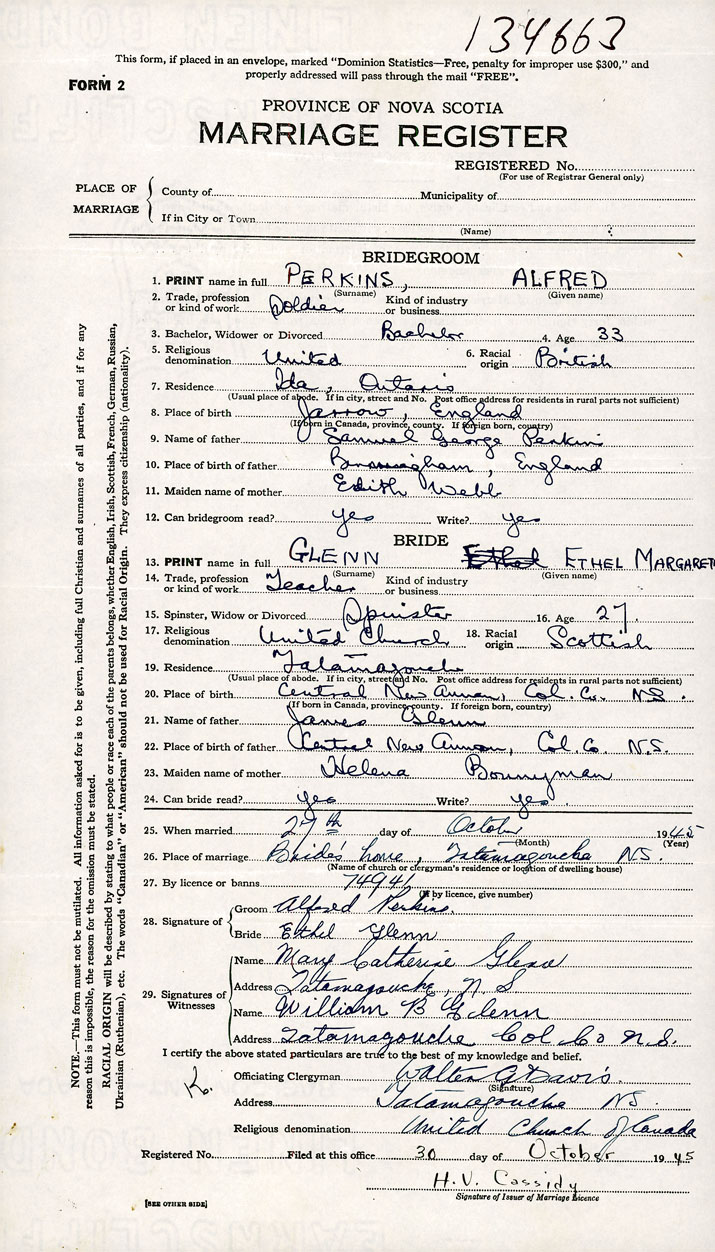 134663
This form, if placed in an envelope, marked "Dominion Statistics—Free, penalty for improper use $300," and
properly addressed will pass through the mail "FREE".
FORM 2
PROVINCE OF NOVA SCOTIA
MARRIAGE REGISTER
REGISTERED No.
(For use of Registrar General only)
PLACE OF MARRIAGE
County of Municipality of
If in City or Town
(Name)
BRIDEGROOM
1. PRINT name in full PERKINS, ALFRED
(Surname) (Given name)
2. Trade, profession or kind of work Soldier Kind of industry or business
3. Bachelor, Widower or Divorced Bachelor 4. Age 33
5. Religious denomination United 6. Racial origin British
7. Residence Ida, Ontario
(Usual place of abode. If in city, street and No. Post office address for residents in rural parts not sufficient)
8. Place of birth Jarrow, England
(If born in Canada, province, county. If foreign born, country)
9. Name of father Samuel George Perkins
10. Place of birth of father England
11. Maiden name of mother Edith Webb
12. Can bridegroom read? yes Write? yes
BRIDE
13. PRINT name in full GLENN Ethel ETHEL MARGARET
(Surname) (Given name)
14. Trade, profession or kind of work Teacher Kind of industry or business
15. Spinster, Widow or Divorced Spinster 16. Age 27.
17. Religious denomination United Church 18. Racial origin Scottish
19. Residence Tatamagouche
(Usual place of abode. If in city, street and No. Post office address for residents in rural parts not sufficient)
20. Place of birth Central New Annan, Col. Co. N.S.
(If born in Canada, province, county. If foreign born, country)
21. Name of father James Glenn
22. Place of birth of father Central New Annan, Col. Co. N.S.
23. Maiden name of mother Helena Bonnyman
24. Can bride read? yes Write? yes
25. When married 27th day of October 1945
(Month) (Year)
26. Place of marriage Bride's home, Tatamagouche NS.
(Name of church or clergyman's residence or location of dwelling house)
27. By licence or banns 74941
(If by licence, give number)
28. Signature of
Groom Alfred Perkins.
Bride Ethel Glenn
29. Signatures of Witnesses
Name Mary Catherine Glenn
Address Tatamagouche, N.S
Name William B Glenn
Address Tatamagouche Col Co N.S.
I certify the above stated particulars are true to the best of my knowledge and belief.
Officiating Clergyman Walter G Davis.
(Signature)
Address Tatamagouche NS.
Religious denomination United Church of Canada
Registered No. Filed at this office 30 day of October 1945
H.V. Cassidy
Signature of Issuer of Marriage Licence
[SEE OTHER SIDE]
NOTE.—This form must not be mutilated. All information asked for is to be given, including full Christian and surnames of all parties, and if for any
reason this is impossible, the reason for the omission must be stated.
RACIAL ORIGIN will be described by stating to what people or race each of the parents belongs, whether English, Irish, Scottish, French, German, Russian,
Ukrainian (Ruthenian), etc. The words "Canadian" or "American" should not be used for Racial Origin. They express citizenship (nationality).